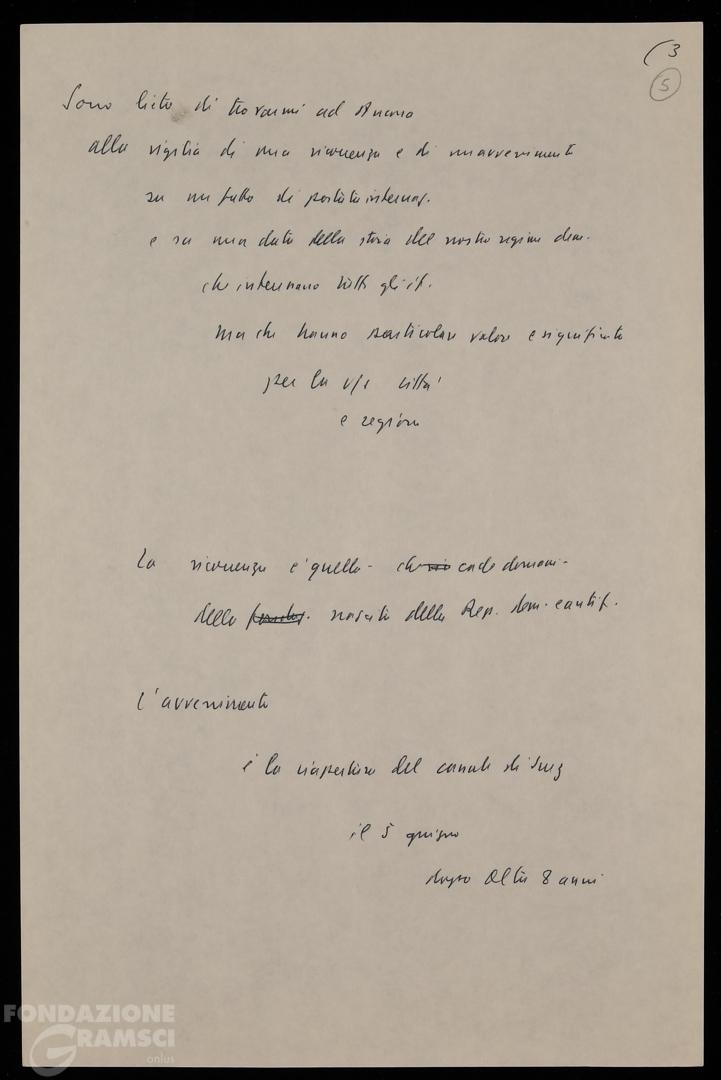 (3
5
Sono lieto di trovarmi ad Ancona
alla vigilia di una ricorrenza e di un avvenimento
su un fatto di portata internaz.
e su una data della storia del nostro regime dem.
che interessano tutti gli it.
ma che hanno particolare valore e significato
per la v/s città
e regione
La ricorrenza è quella - che cade domani -
della nascita della Rep. dem. e antif.
L'avvenimento
è la riapertura del canale di Suez
il 5 giugno
dopo oltre 8 anni
FONDAZIONE
GRAMSCI
onlus